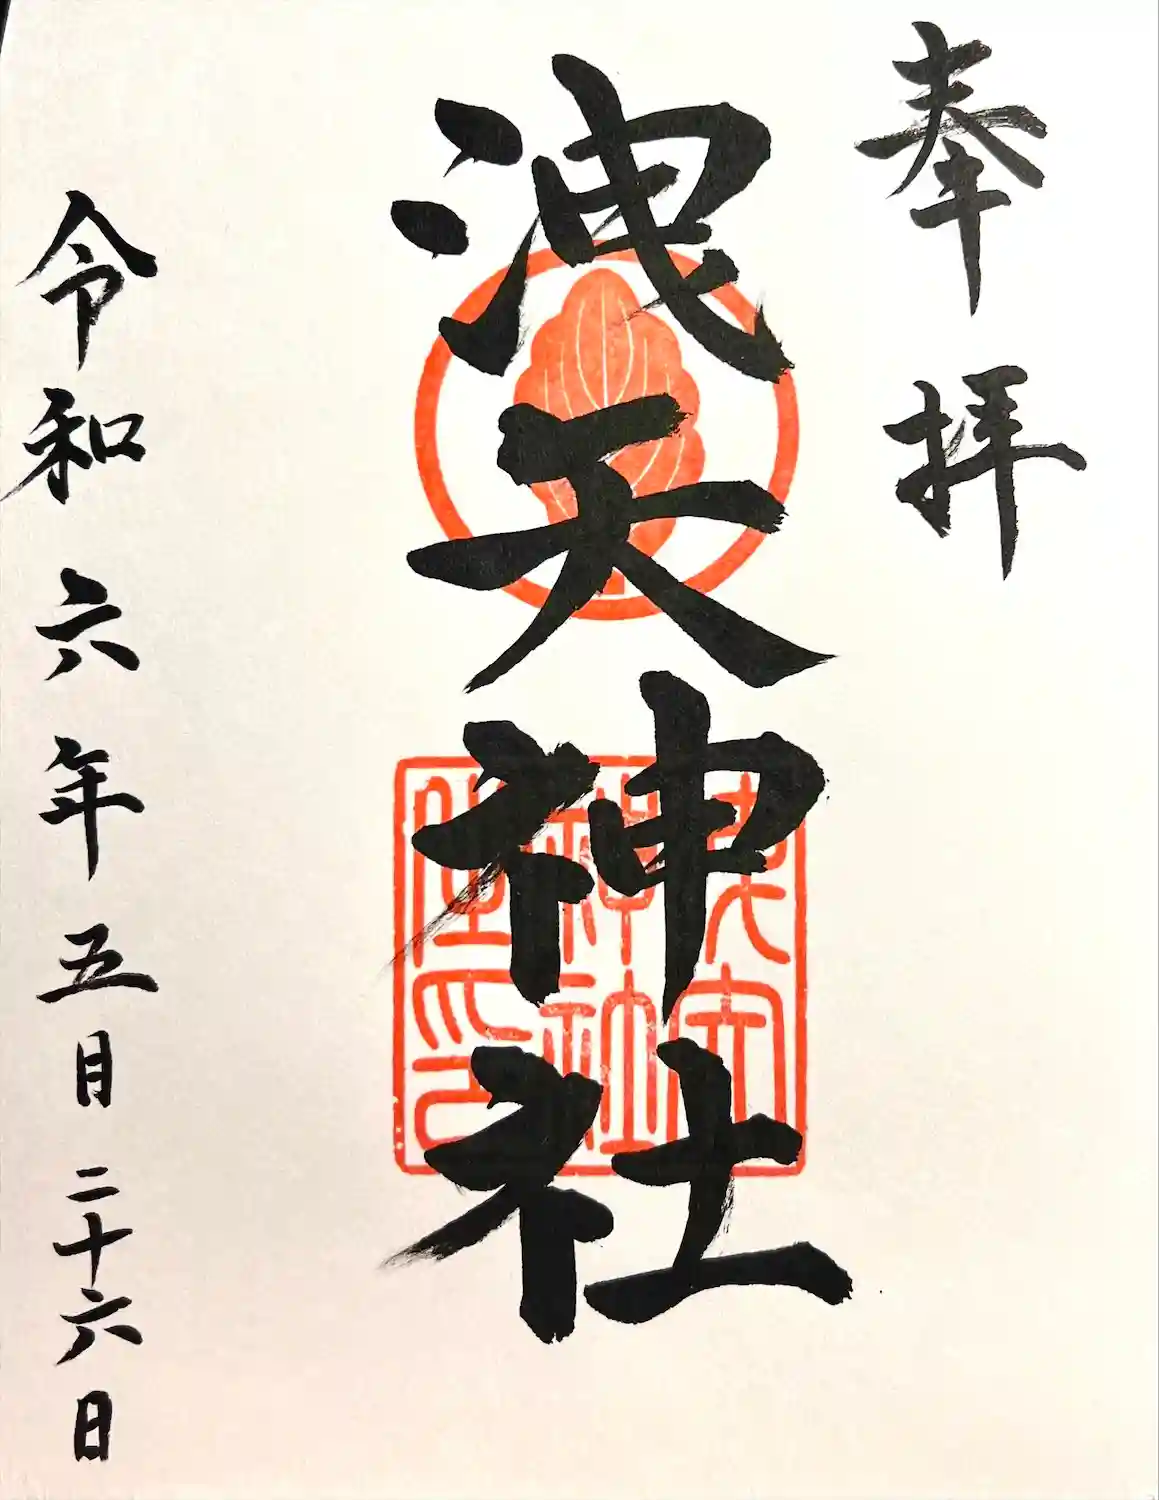 奉拝
洩矢神社
令和六年五月二十六日